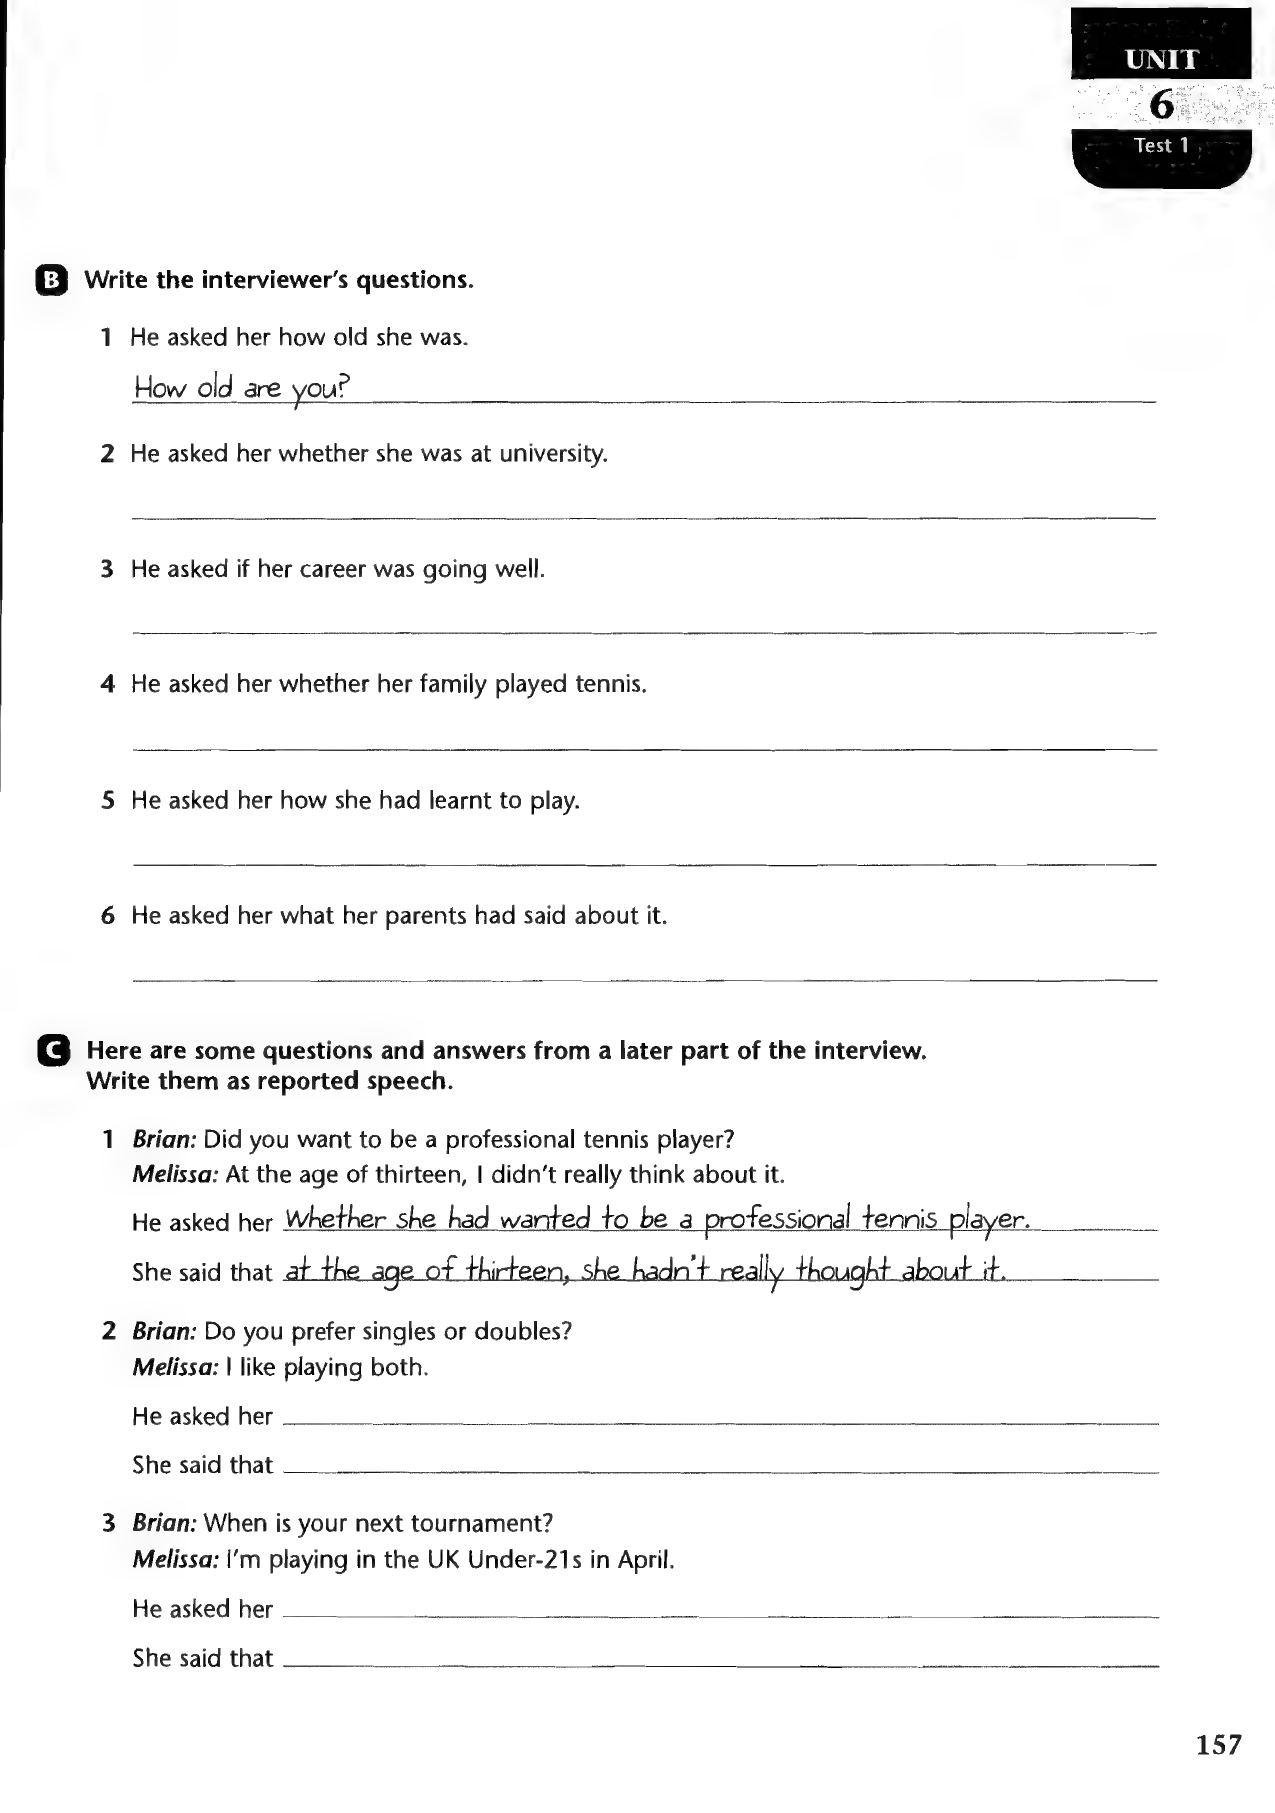 UNIT
6
Test 1
B Write the interviewer's questions.
1 He asked her how old she was.
How old are you?
2 He asked her whether she was at university.
3 He asked if her career was going well.
4 He asked her whether her family played tennis.
5 He asked her how she had learnt to play.
6 He asked her what her parents had said about it.
C Here are some questions and answers from a later part of the interview.
Write them as reported speech.
1 Brian: Did you want to be a professional tennis player?
Melissa: At the age of thirteen, I didn't really think about it.
He asked her Whether she had wanted to be a professional tennis player.
She said that at the age of thirteen, she hadn't really thought about it.
2 Brian: Do you prefer singles or doubles?
Melissa: I like playing both.
He asked her
She said that
3 Brian: When is your next tournament?
Melissa: I'm playing in the UK Under-21s in April.
He asked her
She said that
157